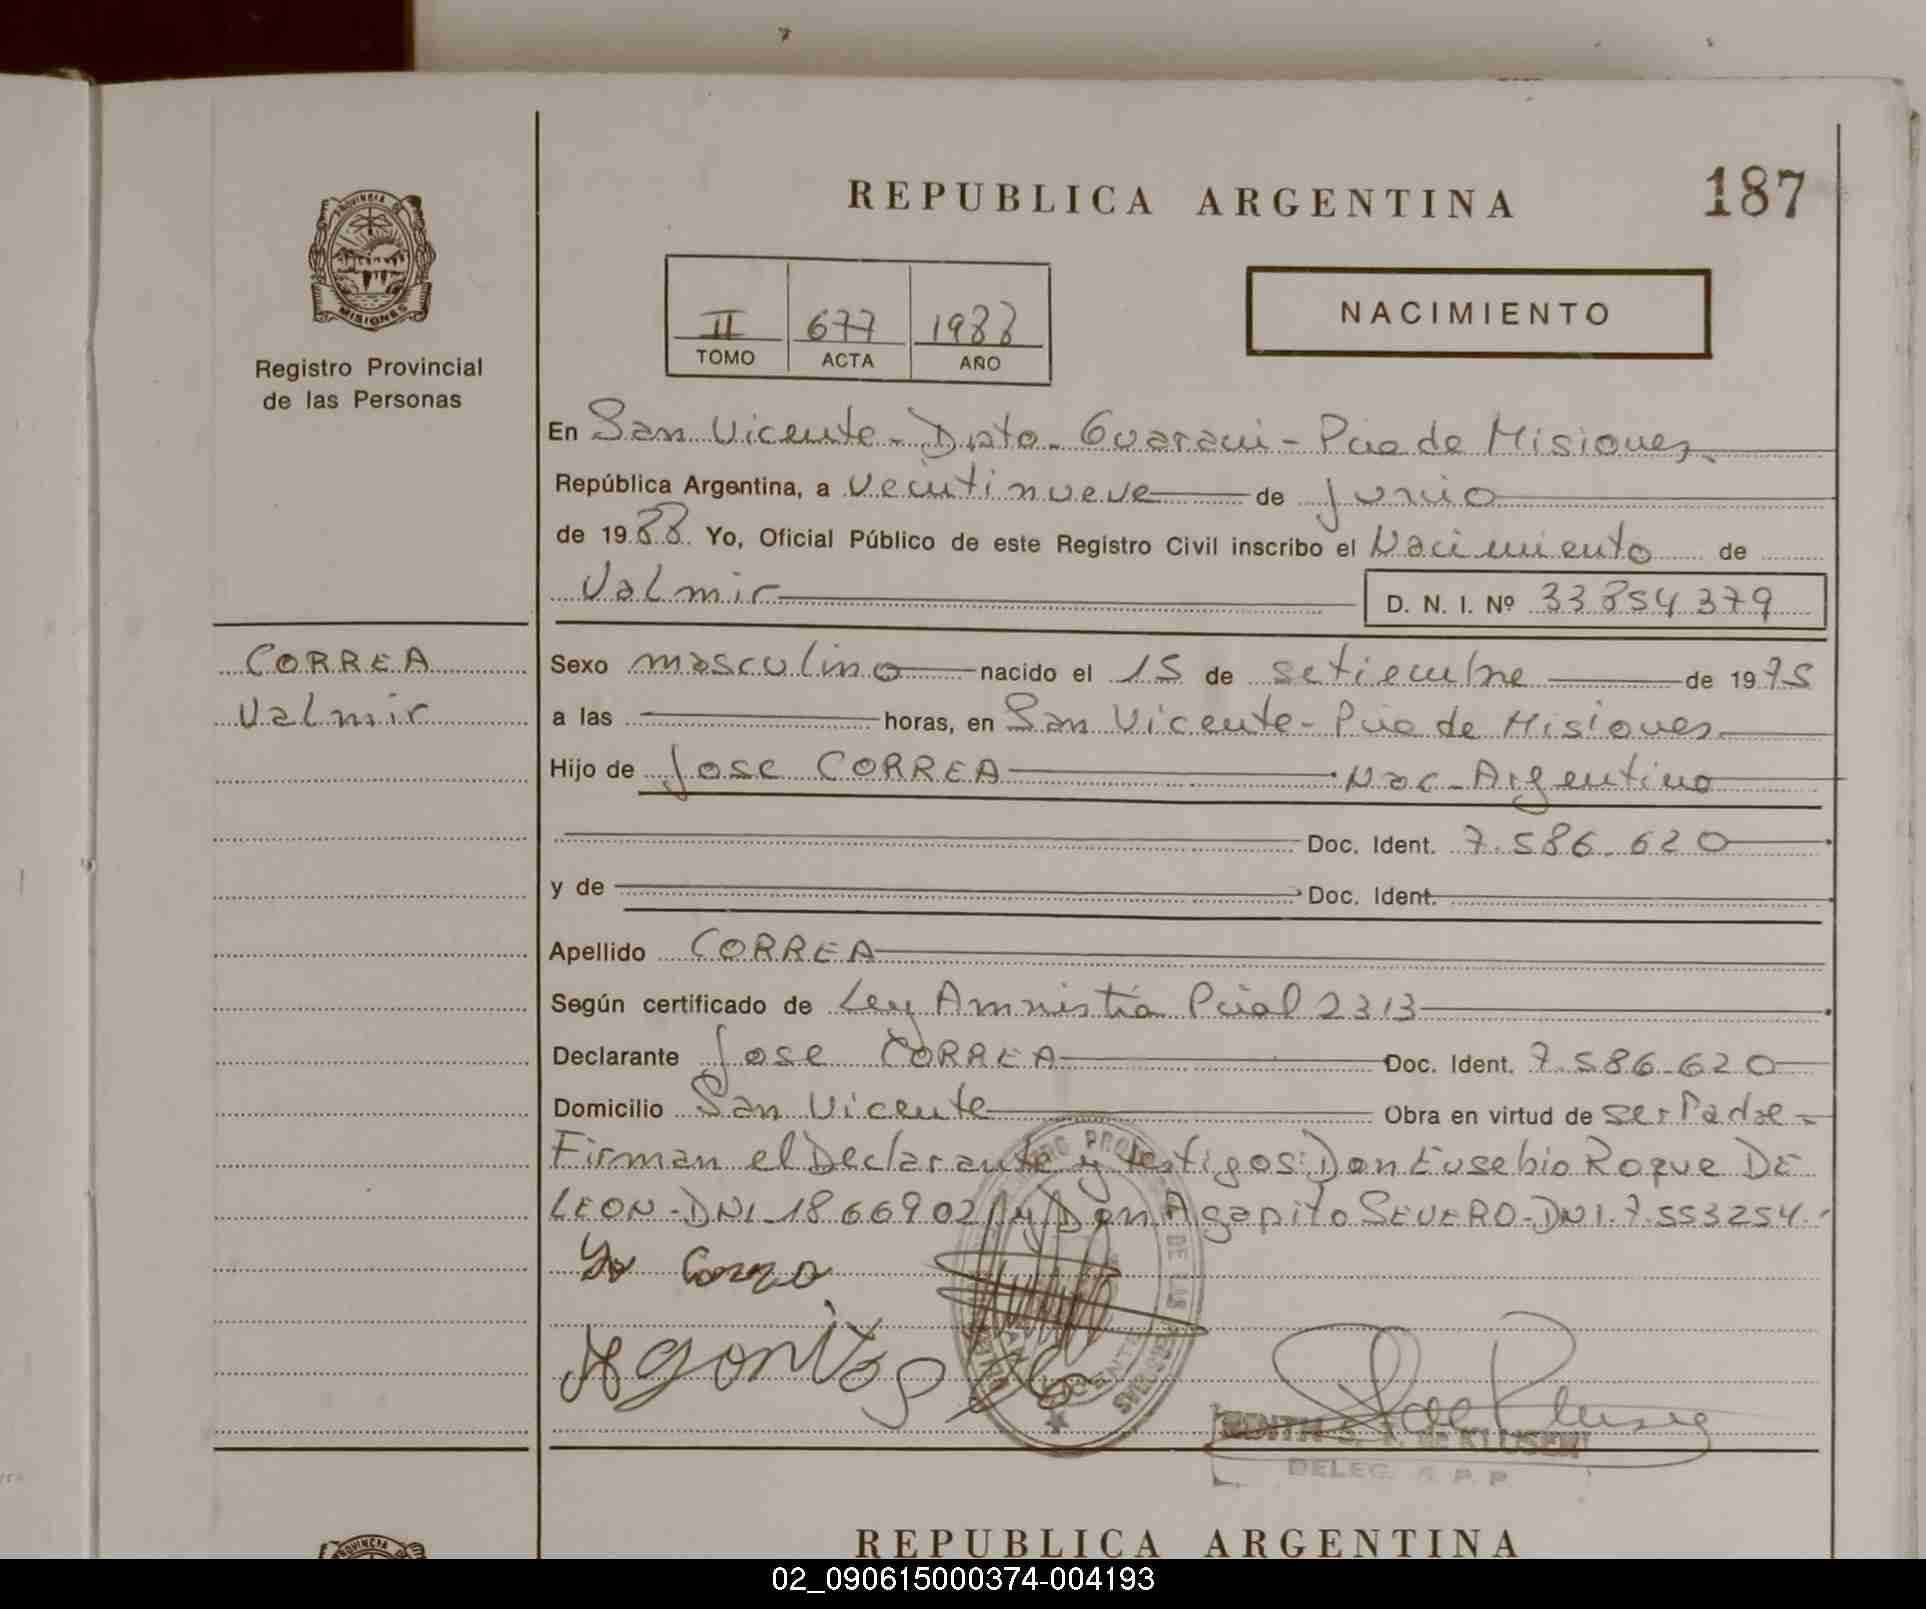 REPUBLICA ARGENTINA
187
PROVINCIA DE
MISIONES
Registro Provincial
de las Personas
II 677 1988
TOMO ACTA AÑO
NACIMIENTO
En San Vicente - Dpto - Guarani - Pcia de Misiones
República Argentina, a veintinueve de junio
de 1988 Yo, Oficial Público de este Registro Civil inscribo el Nacimiento de
Valmir D. N. I. Nº 33854379
CORREA
Valmir
Sexo masculino nacido el 15 de setiembre de 1975
a las horas, en San Vicente - Pcia de Misiones
Hijo de Jose CORREA Nac - Argentino
Doc. Ident. 7.586.620
y de Doc. Ident.
Apellido CORREA
Según certificado de Ley Amnistía Pcial 2313
Declarante Jose CORREA Doc. Ident. 7.586.620
Domicilio San Vicente Obra en virtud de ser Padre -
Firman el Declarante y testigos: Don Eusebio Roque DE
LEON - DNI - 1866902 y Don Agapito SEVERO - DNI. 7.553254.
DE LAS
DE KLUSEN
DELEG. R. P. P.
REPUBLICA ARGENTINA
PROVINCIA
02_090615000374-004193